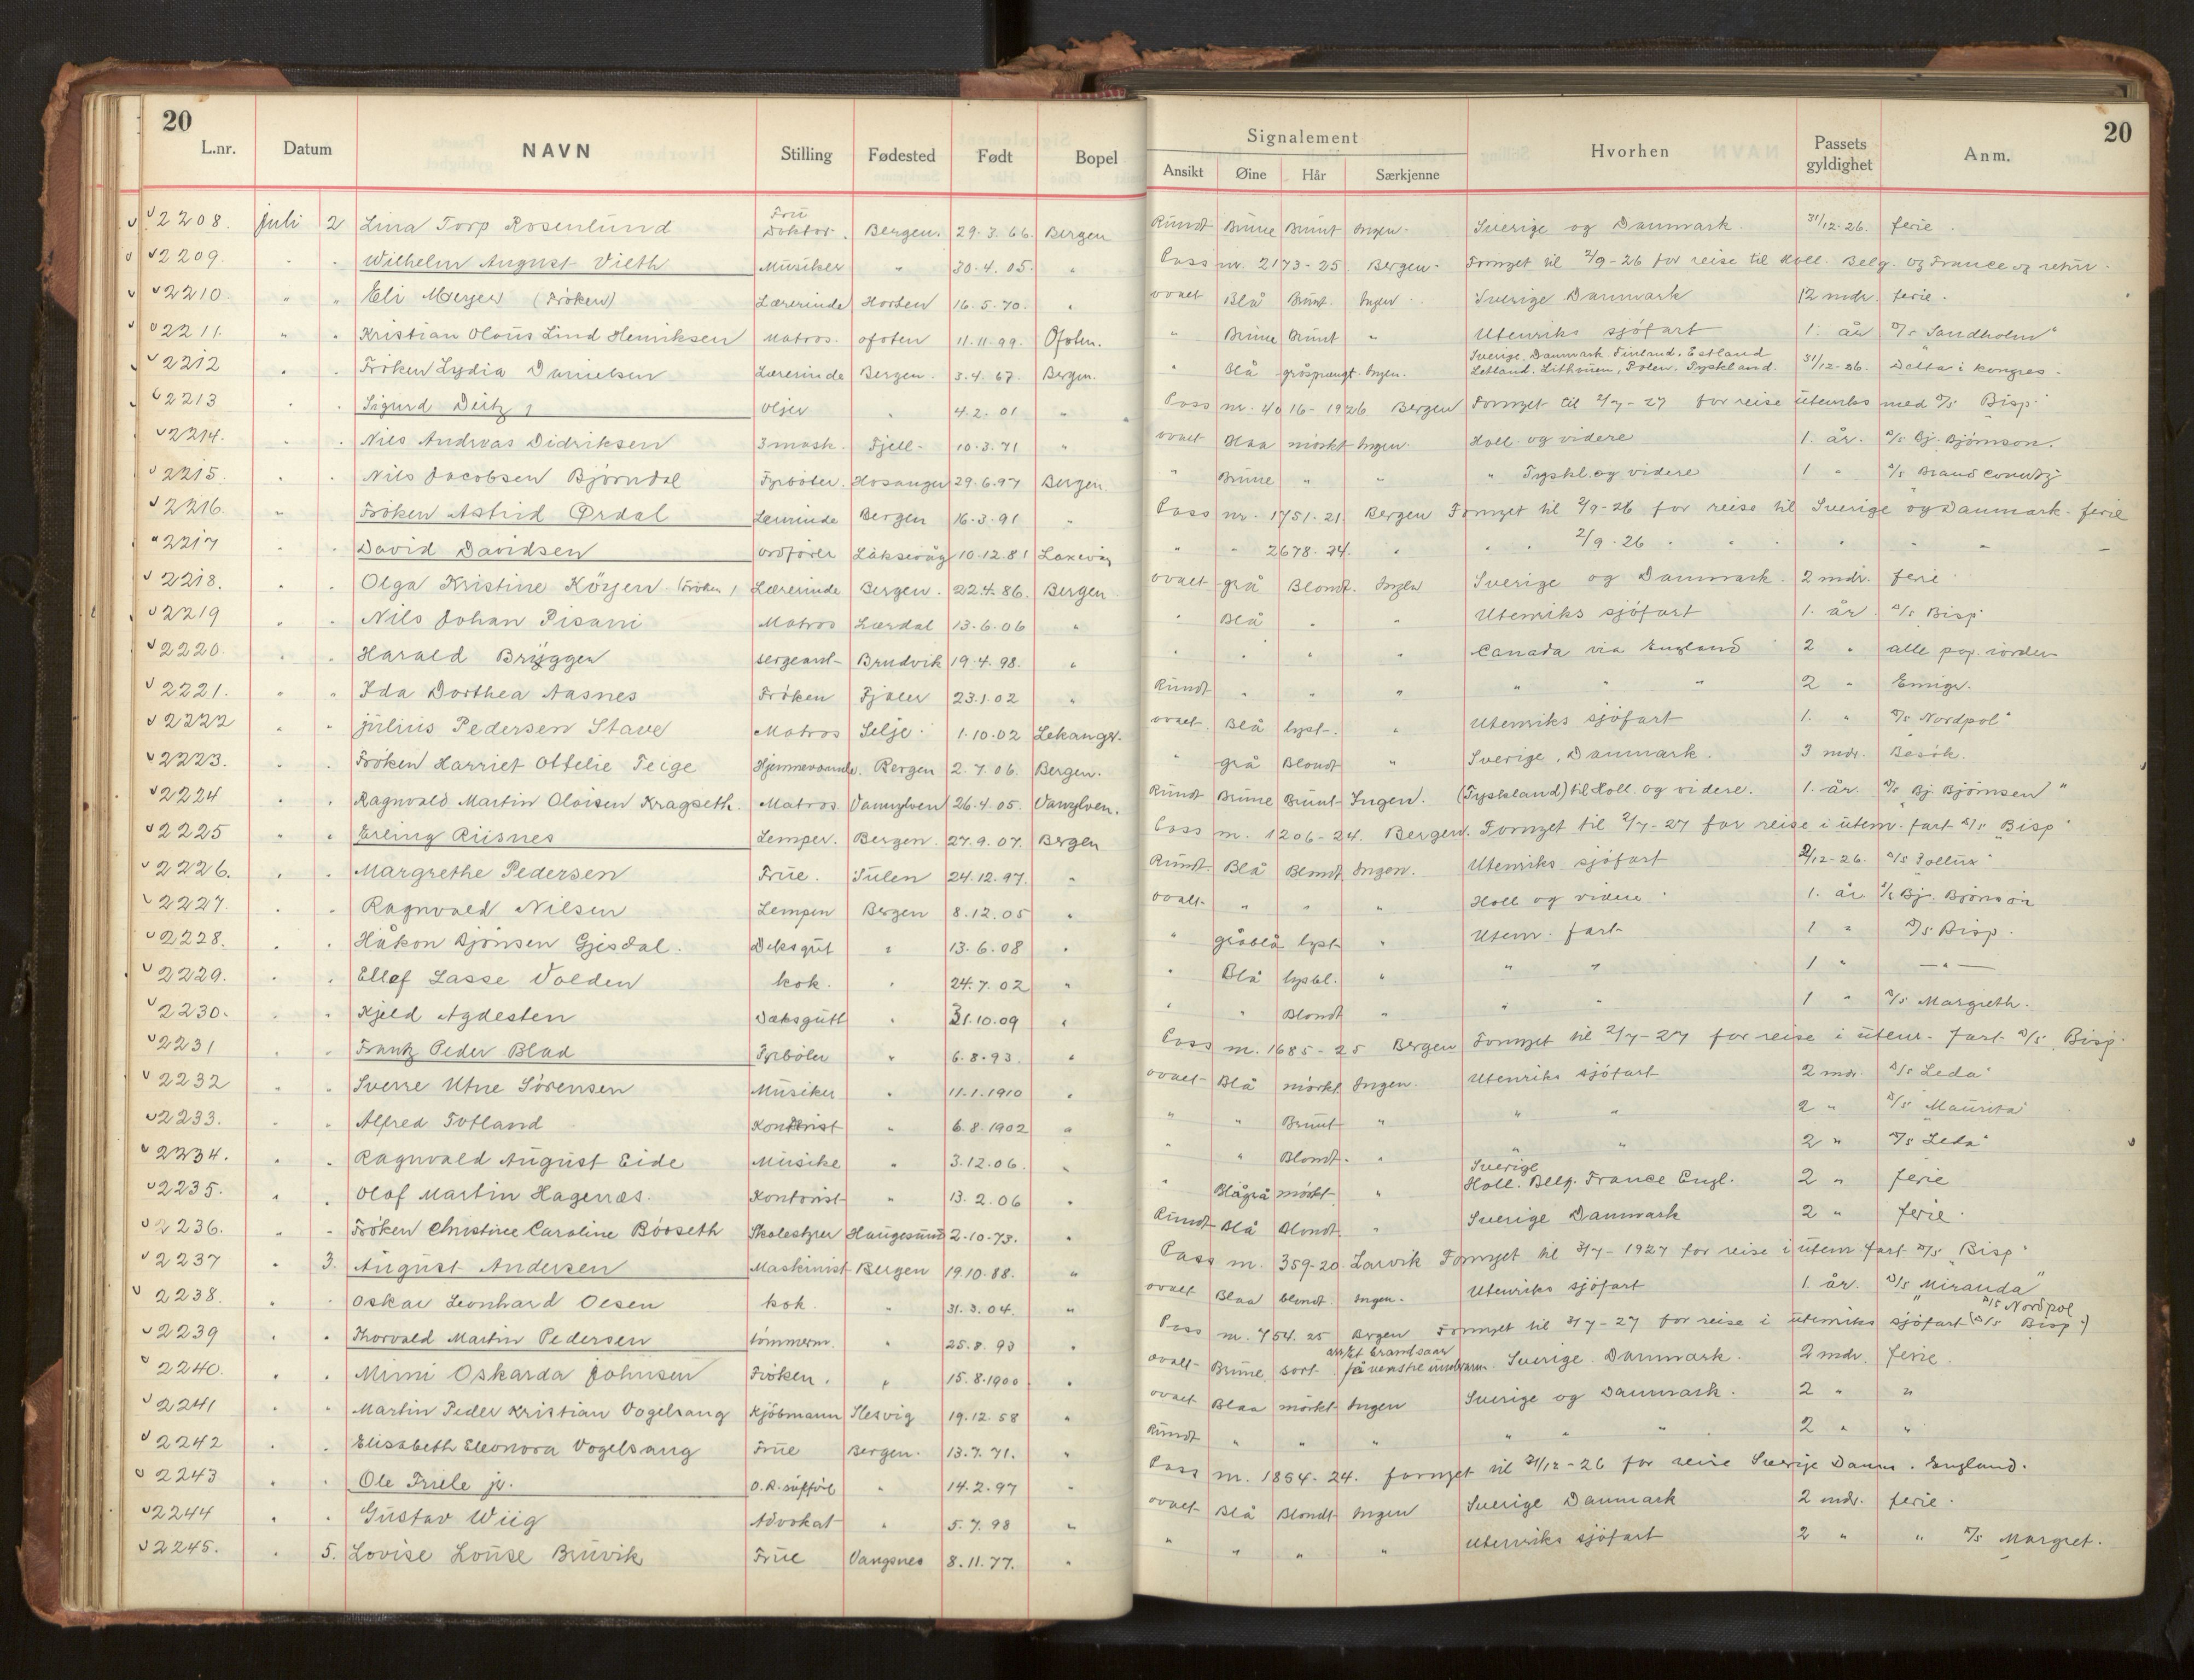 20
L.nr. Datum NAVN Stilling Fødested Født Bopel Signalement Ansikt Øine Hår Særkjenne Hvorhen Passets gyldighet Anm.
20
2208. juli 2 Lina Torp Rosenlund Frü Doktor. Bergen. 29.3.66. Bergen Rundt Brune Brunt Ingen. Sverige og Danmark. 31/12-26. ferie.
2209. " " Wilhelm August Vieth Musiker " 30.4.05. " Pass nr. 2173-25. Bergen. Fornyet til 2/9-26 for reise til Holl. Belg. og France og retur.
2210. " " Eli Meyer (Fröken) Lærerinde Horten 16.5.70. " ovalt Blå Brunt Ingen. Sverige Danmark 12 mdr. ferie.
2211. " " Kristian Olaus Lind Henriksen Matros. Ofoten 11.11.99. Ofoten. " Brune Brunt " Utenriks sjöfart 1. år D/S Sandholm"
2212 " " Fröken Lydia Danielsen Lærerinde Bergen. 3.4.67. Bergen. " Blå gråsprengt. Ingen. Sverige. Danmark. Finland. Estland Letland. Lithauen, Polen. Tyskland. 31/12-26. Delta i kongres.
2213 " " Sigurd Deitz, Oljer " 4.2.01 " Pass nr. 4016-1926 Bergen Fornyet til 2/7-27 for reise utenriks med D/S Bisp"
2214. " " Nils Andreas Didriksen 3 mask. Fjell. 10.3.71 " ovalt Blaa mörkt Ingen. Holl. og videre 1. år. D/S Bj. Björnson.
2215. " " Nils Jacobsen Björndal Fyrböter. Hosanger 29.6.97 Bergen. " Brune " " " Tyskl. og videre 1 " D/S Brand County
2216. " " Fröken Astrid Ørdal Lærerinde Bergen 16.3.91 " Pass nr. 1751-21. Bergen Fornyet til 2/9-26 for reise til Sverige og Danmark. ferie
2217 " " David Davidsen Ordförer Laksevåg 10.12.81 Laxevåg " " 2678-24. " " " 2/9-26 " " " " "
2218. " " Olga Kristine Köyen. (Fröken) Lærerinde Bergen. 22.4.86. Bergen ovalt grå Blondt. Ingen Sverige og Danmark. 2 mdr. ferie
2219 " " Nils Johan Pisani Matros Lærdal 13.6.06 " " Blå " " Utenriks sjöfart 1. år. D/S Bisp"
2220 " " Harald Brügger Sergeant Brudvik 19.4.98. " " " " " Canada via England 2 " alle pap. iorden
2221. " " Ida Dorthea Aasnes Fröken Fjaler 23.1.02 " Rundt " " " " " " 2 " Emigr.
2222 " " Julius Pedersen Stave Matros Selje. 1.10.02 Lekanger. ovalt. Blå lyst. " Utenriks sjöfart 1. " D/S Nordpol"
2223. " " Fröken Harriet Ottelie Teige Hjemmeværende. Bergen 2.7.06. Bergen. " grå Blondt " Sverige, Danmark. 3 mdr. Besök.
2224 " " Ragnvald Martin Olaisen Kragseth. Matros Vannylven 26.4.05. Vanylven. Rundt Brune Brunt Ingen. (Tyskland) til Holl. og videre. 1. år. D/S Bj. Björnsen"
2225 " " Erling Riisnes Lemper. Bergen. 27.9.07. Bergen Pass nr. 1206-24. Bergen. Fornyet til 2/7-27 for reise i utenr. fart D/S Bisp"
2226. " " Margrethe Pedersen Frue. Sulen 24.12.97. " Rundt. Blå Blondt Ingen. Utenriks sjöfart 2/12-26. D/S Pollux"
2227. " " Ragnvald Nilsen Lempen Bergen 8.12.05 " ovalt. " " " Holl og videre. 1. år D/S Bj. Björnson
2228. " " Håkon Björnsen Gjesdal. Deksgut " 13.6.08 " " gråblå lyst " Utenr. fart 1 " D/S Bisp.
2229. " " Ellef Lasse Valden kok. " 24.7.02 " " Blå lysbl. " " " 1 " — " —
2230. " " Kjeld Agdesten Daksgutt " 31.10.09 " " " Blondt " " " 1 " D/S Margreth.
2231 " " Frantz Peder Blad Fyrböter " 6.8.93. " Pass nr. 1685-25 Bergen Fornyet til 2/7-27 for reise i utenr. fart D/S Bisp.
2232 " " Sverre Utne Sörensen Musiker " 11.1.1910 " ovalt Blå mörkt Ingen. Utenriks sjöfart 2 mdr. D/S Leda"
2233. " " Alfred Totland Kontorist " 6.8.1902 " " " Brunt " " " 2 " D/S Maurita"
2234. " " Ragnvald August Eide Musike " 3.12.06. " " " Blondt. " " " 2 " D/S Leda"
2235. " " Olaf Martin Hagenæs. Kontorist " 13.2.06 " " Blågrå mörkt " Sverige Holl. Belg. France Engl. 2 " ferie
2236. " " Fröken Christine Caroline Börseth Skolestyrer Haugesund 2.10.73. " Rundt Blå Blondt. " Sverige Danmark 2 " ferie.
2237 " 3. August Andersen Maskinist Bergen 19.10.88. " Pass nr. 359-20. Larvik Fornyet til 3/7-1927 for reise i utenr. fart D/S Bisp"
2238. " " Oskar Leonhard Olsen kok. " 31.3.04. " ovalt Blaa blondt. Ingen. Utenriks sjöfart 1. år. D/S Miranda"
2239 " " Thorvald Martin Pedersen tömmerm. " 25.8.93 " Pass nr. 754.25 Bergen Fornyet til 3/7-27 for reise i utenriks sjöfart (D/S Bisp") D/S Nordpol
2240. " " Mimi Oskarda Johnsen Fröken. " 15.8.1900 " ovalt Brune sort. arr. Et brandsaar på venstre underarm. Sverige. Danmark. 2 mdr. ferie.
2241 " " Martin Peder Kristian Vogelsang Kjöbmann Slesvig 19.12.58 " ovalt Blaa mörkt Ingen Sverige og Danmark. 2 " "
2242 " " Elisabeth Eleonora Vogelsang Frue Bergen. 13.7.71. " Rundt " " " " " " 2 " "
2243 " " Ole Friele jr. O.R. sakför " 14.2.97 " Pass nr. 1854-24. fornyet til 31/12-26 for reise Sverige Danm. England.
2244 " " Gustav Wiig Advokat " 5.7.98 " ovalt Blå Blondt Ingen Sverige Danmark 2 mdr. ferie.
2245. " 5. Lovise Louse Bruvik Frue Vangsnes 8.11.77. " " " " " Utenriks sjöfart 2 " " D/S Margret.